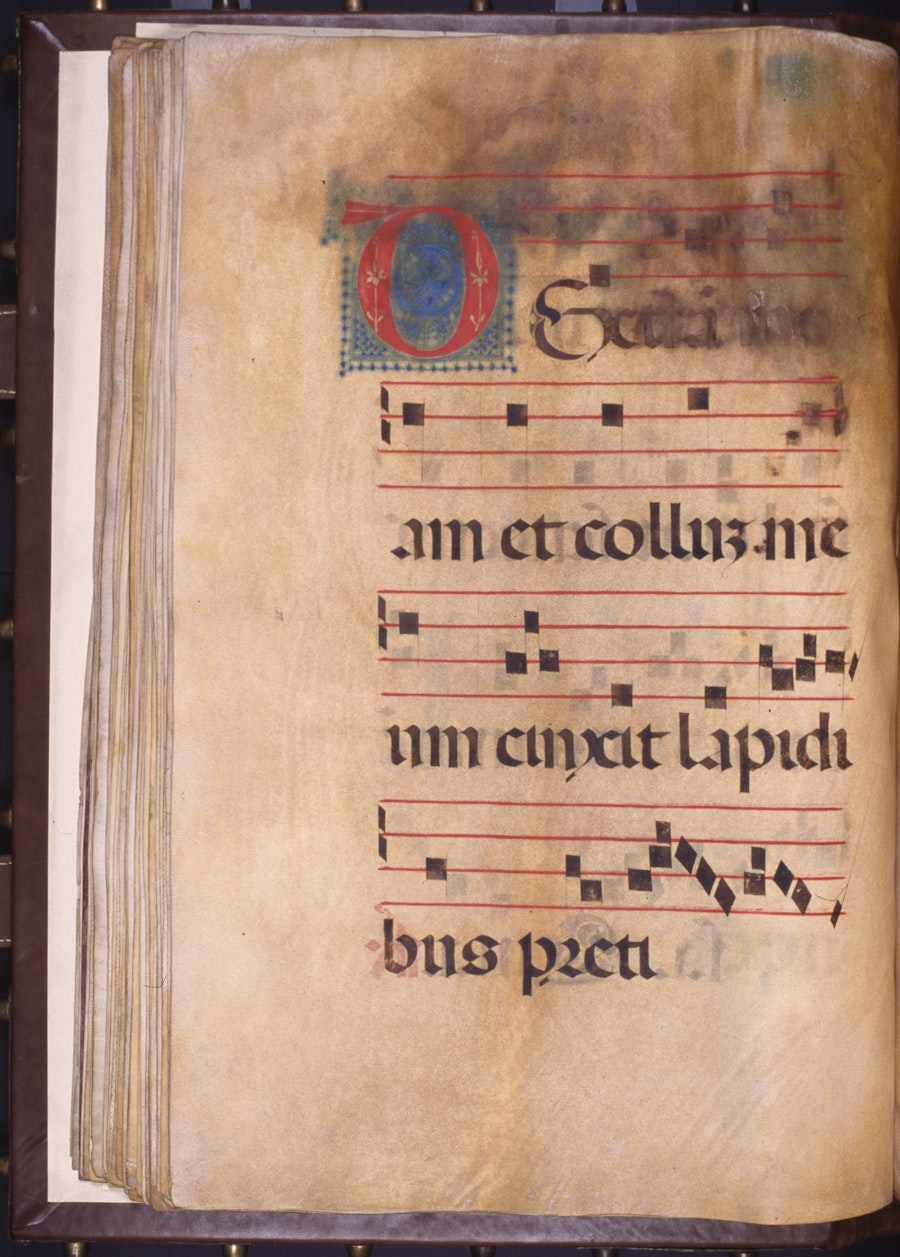 DExterã me
am et collu&#xA76B; me
um cinxit lapidi
bus preti